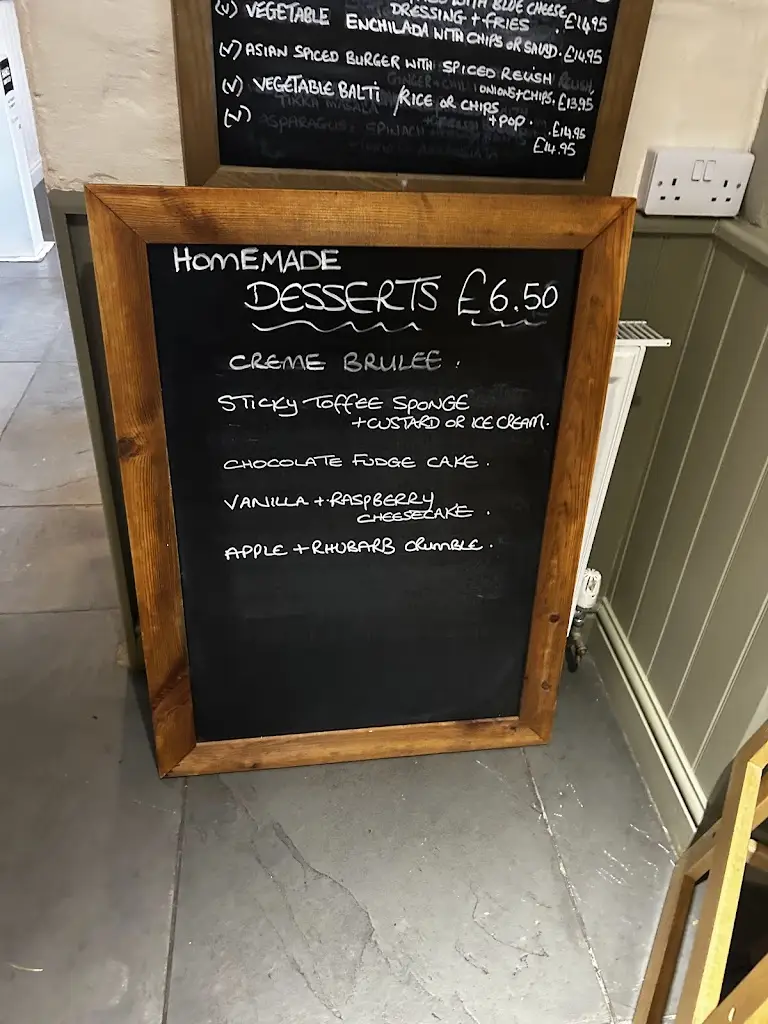 WITH BLUE CHEESE
DRESSING + FRIES £14.95
(V) VEGETABLE ENCHILADA WITH CHIPS OR SALAD. £14.95
(V) ASIAN SPICED BURGER WITH SPICED RELISH
ONIONS + CHIPS. £13.95
(V) VEGETABLE BALTI / RICE OR CHIPS
+ POP. £14.95
(V)
£14.95
HOMEMADE
DESSERTS £6.50
CREME BRULEE.
STICKY TOFFEE SPONGE
+ CUSTARD OR ICE CREAM.
CHOCOLATE FUDGE CAKE.
VANILLA + RASPBERRY
CHEESECAKE.
APPLE + RHUBARB CRUMBLE.